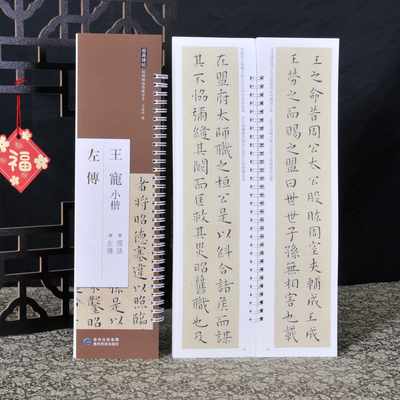 福
王寵小楷
左傳
國語
左傳
者將昭德塞違以臨
王之命昔周公大公股肱周室夾輔成王成
王勞之而賜之盟曰世世子孫無相害也載
在盟府大師職之桓公是以糾合諸侯而謀
其不協彌縫其闕而匡救其災昭舊職也及